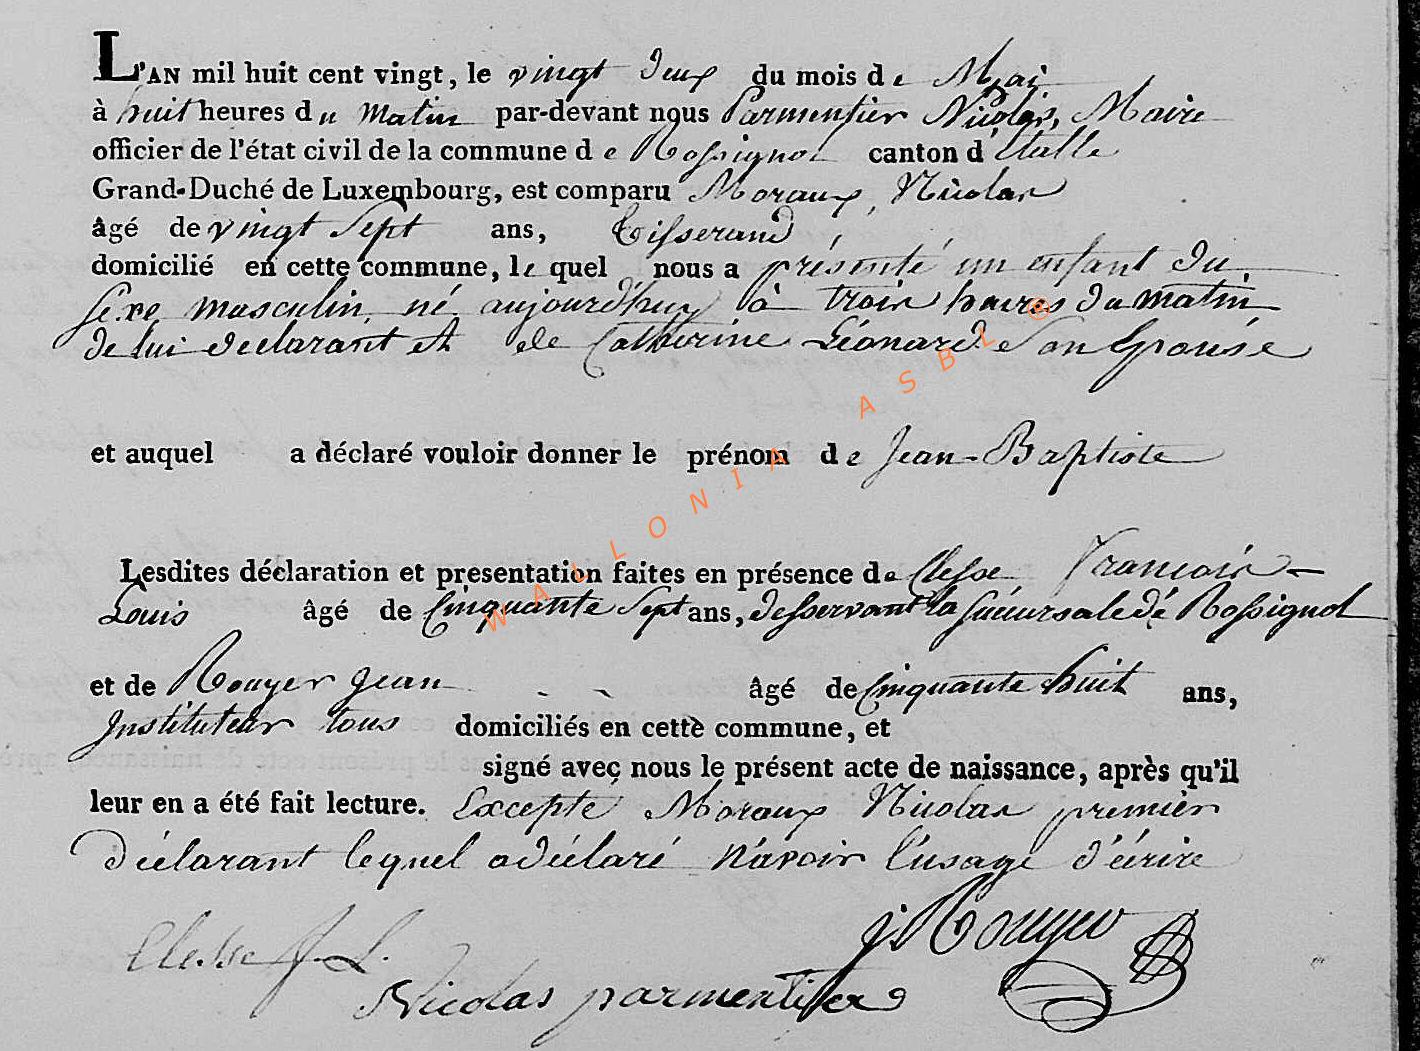 L'AN mil huit cent vingt, le vingt deux du mois de Mai
à huit heures du matin par-devant nous Parmentier Nicolas, Maire
officier de l'état civil de la commune de Rossignol canton d'Etalle
Grand-Duché de Luxembourg, est comparu Moraux, Nicolas
âgé de vingt sept ans, Tisserand,
domicilié en cette commune, le quel nous a présenté un enfant du
sexe masculin, né aujourd'huy à trois heures du matin
de lui declarant et de Catherine Léonard son Epouse
et auquel a déclaré vouloir donner le prénom de Jean-Baptiste
Lesdites déclaration et presentation faites en présence de Clesse François
Louis âgé de Cinquante sept ans, desservant la succursale de Rossignol
et de Rouyer Jean âgé de Cinquante huit ans,
Instituteur tous domiciliés en cette commune, et
signé avec nous le présent acte de naissance, après qu'il
leur en a été fait lecture. Excepté Moraux Nicolas premier
déclarant lequel a déclaré n'avoir l'usage d'écrire
J. Rouyer
Clesse f. L.
Nicolas parmentier
WALLONIA ASBL ®